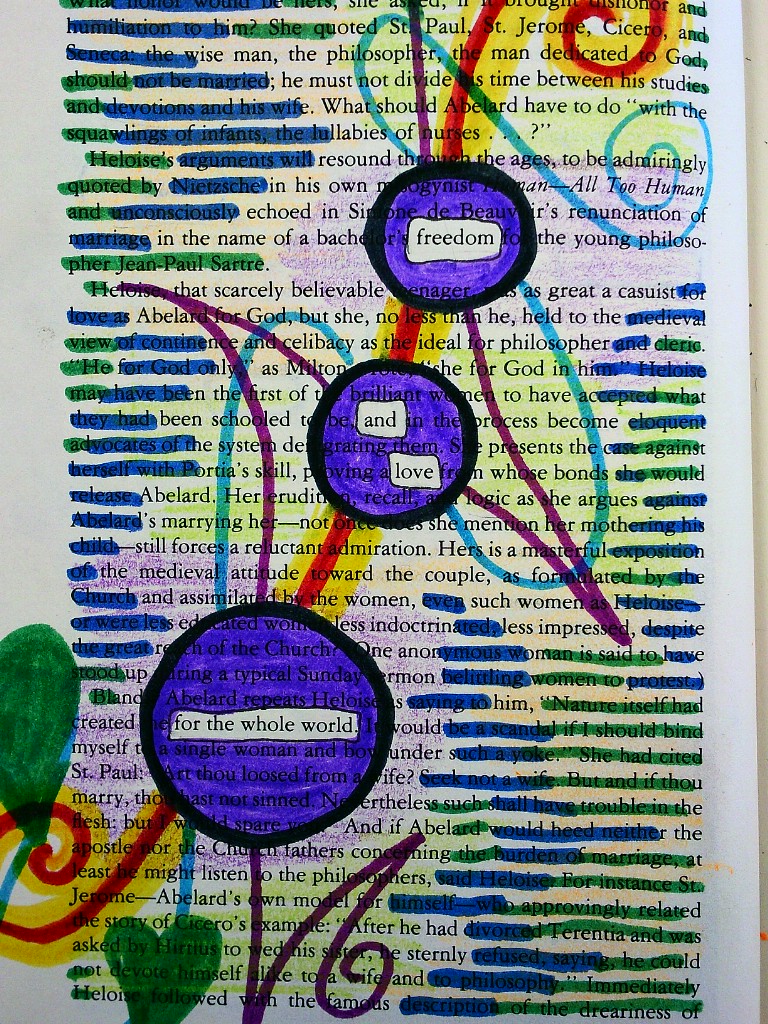 what honor would be hers, she asked, if it brought dishonor and
humiliation to him? She quoted St. Paul, St. Jerome, Cicero, and
Seneca: the wise man, the philosopher, the man dedicated to God,
should not be married; he must not divide his time between his studies
and devotions and his wife. What should Abelard have to do "with the
squawlings of infants, the lullabies of nurses . . . ?"
Heloise's arguments will resound through the ages, to be admiringly
quoted by Nietzsche in his own misogynist Human—All Too Human
and unconsciously echoed in Simone de Beauvoir's renunciation of
marriage in the name of a bachelor's freedom for the young philoso-
pher Jean-Paul Sartre.
Heloise, that scarcely believable teenager, was as great a casuist for
love as Abelard for God, but she, no less than he, held to the medieval
view of continence and celibacy as the ideal for philosopher and cleric.
"He for God only," as Milton wrote, "she for God in him." Heloise
may have been the first of the brilliant women to have accepted what
they had been schooled to be, and in the process become eloquent
advocates of the system denigrating them. She presents the case against
herself with Portia's skill, proving a love from whose bonds she would
release Abelard. Her erudition, recall, and logic as she argues against
Abelard's marrying her—not once does she mention her mothering his
child—still forces a reluctant admiration. Hers is a masterful exposition
of the medieval attitude toward the couple, as formulated by the
Church and assimilated by the women, even such women as Heloise—
or were less educated women less indoctrinated, less impressed, despite
the great reach of the Church? (One anonymous woman is said to have
stood up during a typical Sunday sermon belittling women to protest.)
Blandly Abelard repeats Heloise as saying to him, "Nature itself had
created me for the whole world. It would be a scandal if I should bind
myself to a single woman and bow under such a yoke." She had cited
St. Paul: "Art thou loosed from a wife? Seek not a wife. But and if thou
marry, thou hast not sinned. Nevertheless such shall have trouble in the
flesh: but I would spare you." And if Abelard would heed neither the
apostle nor the Church fathers concerning the burden of marriage, at
least he might listen to the philosophers, said Heloise. For instance St.
Jerome—Abelard's own model for himself—who approvingly related
the story of Cicero's example: "After he had divorced Terentia and was
asked by Hirtius to wed his sister, he sternly refused, saying, he could
not devote himself alike to a wife and to philosophy." Immediately
Heloise followed with the famous description of the dreariness of